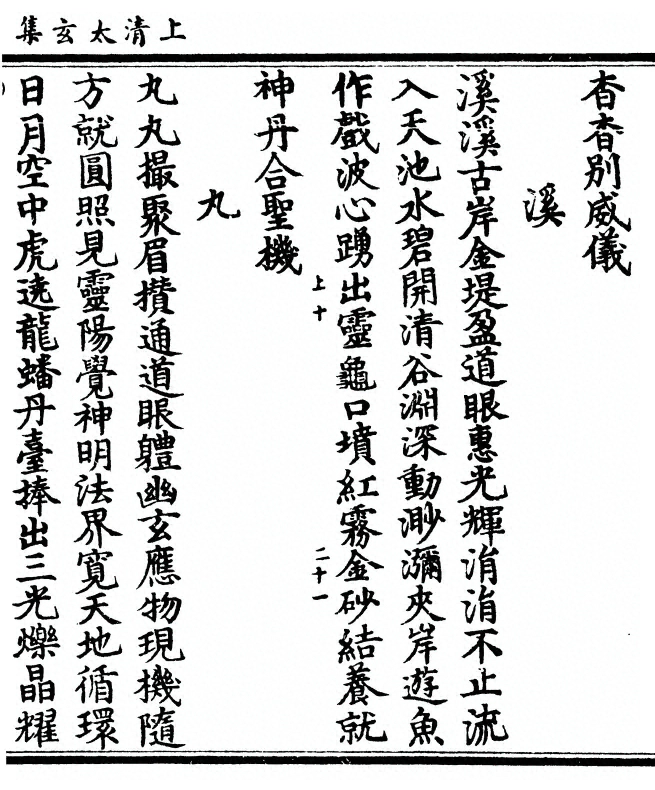 上清太玄集
杳杳别威儀
溪
溪溪古岸金堤盈道眼惠光輝涓涓不止流
入天池水碧開清谷淵深動渺瀰夾岸遊魚
作戲波心踴出靈龜口墳紅霧金砂結養就
上十
二十一
神丹合聖機
丸
丸丸撮聚眉攢通道眼軆幽玄應物現機隨
方就圓照見靈陽覺神明法界寬天地循環
日月空中虎遶龍蟠丹臺捧出三光爍晶耀